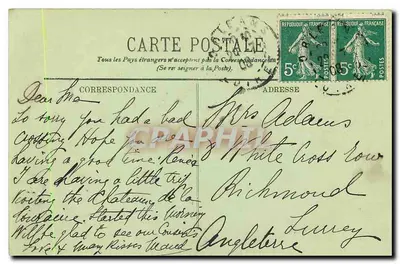 CARTE POSTALE
Tous les Pays étrangers n'acceptent pas la Correspondance
(Se renseigner à la Poste).
CORRESPONDANCE
ADRESSE
REPUBLIQUE FRANÇAISE
5c 5c
POSTES POSTES
ORLEANS
Dear Ma
So sorry you had a bad
crossing Hope you are
having a good time. Renée
& I are having a little trip
visiting the Chateaux de la
Touraine. Started this morning
Will be glad to see our Cousins
Love & many Kisses Maud
Mrs Adams
8 White Cross Row
Richmond
Surrey
Angleterre
CARTAPHIL